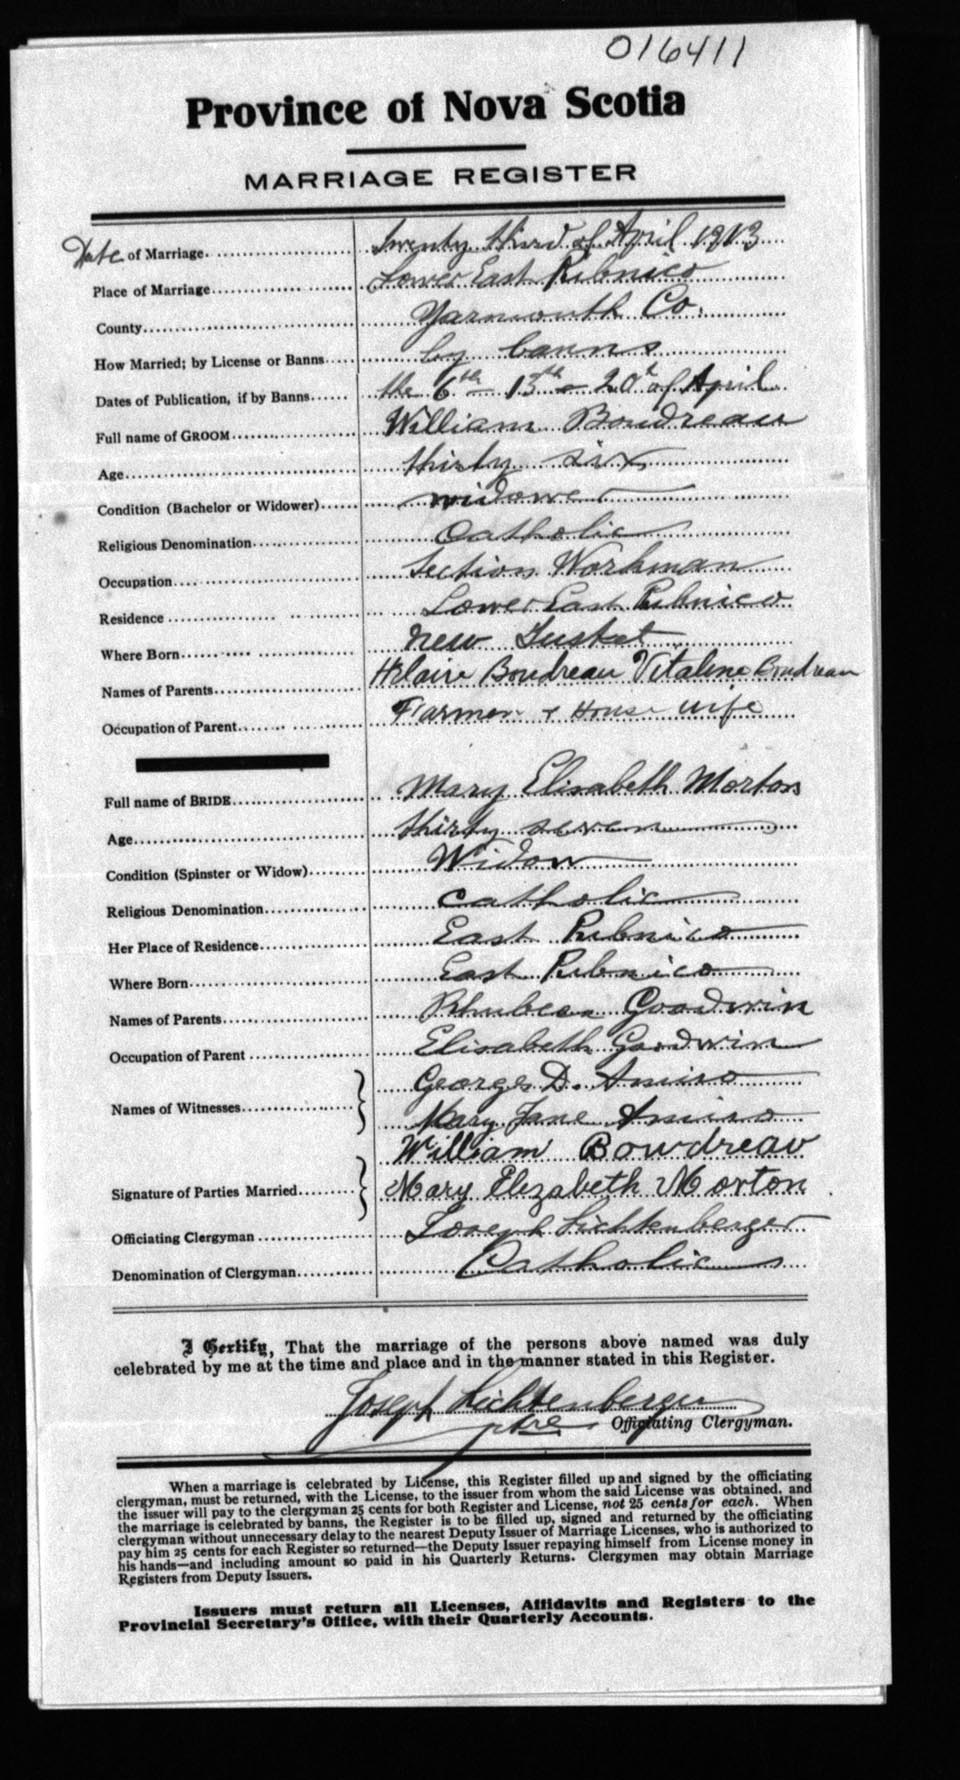 016411
Province of Nova Scotia
MARRIAGE REGISTER
Date of Marriage Twenty third of April 1913
Place of Marriage Lower East Pubnico
County Yarmouth Co.
How Married; by License or Banns by banns
Dates of Publication, if by Banns the 6th 13th & 20th of April
Full name of GROOM William Boudreau
Age thirty six
Condition (Bachelor or Widower) widower
Religious Denomination Catholic
Occupation Section Workman
Residence Lower East Pubnico
Where Born New Tusket
Names of Parents Hilaire Boudreau Vitaline Boudreau
Occupation of Parent Farmer & House wife
Full name of BRIDE Mary Elisabeth Morton
Age thirty seven
Condition (Spinster or Widow) Widow
Religious Denomination Catholic
Her Place of Residence East Pubnico
Where Born East Pubnico
Names of Parents Goodwin
Occupation of Parent Elisabeth Goodwin
Names of Witnesses Georges D. Amiro
Mary Jane Amiro
William Boudreau
Signature of Parties Married Mary Elezabeth Morton
Officiating Clergyman Joseph Lichtenberger
Denomination of Clergyman Catholic
I Certify, That the marriage of the persons above named was duly
celebrated by me at the time and place and in the manner stated in this Register.
Joseph Lichtenberger
ptre Officiating Clergyman.
When a marriage is celebrated by License, this Register filled up and signed by the officiating
clergyman, must be returned, with the License, to the issuer from whom the said License was obtained, and
the issuer will pay to the clergyman 25 cents for both Register and License, not 25 cents for each. When
the marriage is celebrated by banns, the Register is to be filled up, signed and returned by the officiating
clergyman without unnecessary delay to the nearest Deputy Issuer of Marriage Licenses, who is authorized to
pay him 25 cents for each Register so returned—the Deputy Issuer repaying himself from License money in
his hands—and including amount so paid in his Quarterly Returns. Clergymen may obtain Marriage
Registers from Deputy Issuers.
Issuers must return all Licenses, Affidavits and Registers to the
Provincial Secretary's Office, with their Quarterly Accounts.